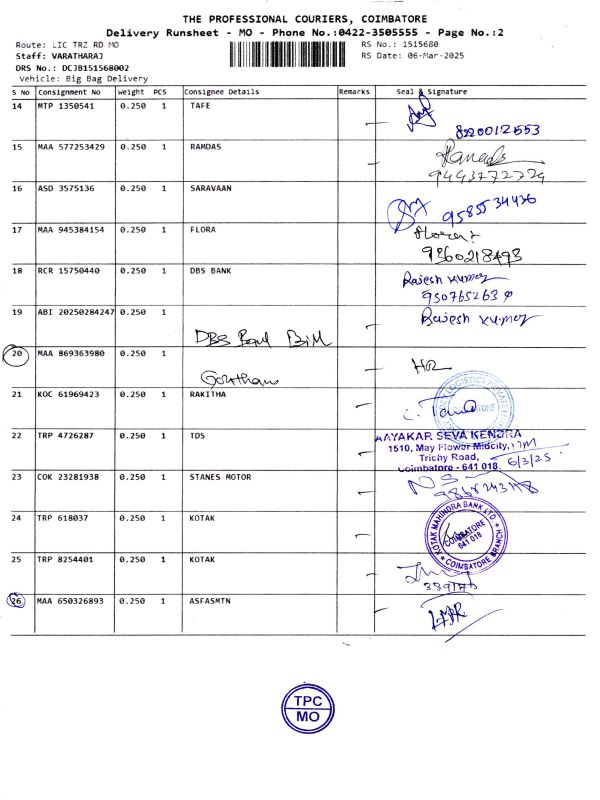 THE PROFESSIONAL COURIERS, COIMBATORE
Delivery Runsheet - MO - Phone No.:0422-3505555 - Page No.:2
Route: LIC TRZ RD MO
RS No.: 1515680
Staff: VARATHARAJ
RS Date: 06-Mar-2025
DRS No.: DCJB151568002
Vehicle: Big Bag Delivery
S No Consignment No Weight PCS Consignee Details Remarks Seal & Signature
14 MTP 1350541 0.250 1 TAFE
15 MAA 577253429 0.250 1 RAMDAS
9443772779
16 ASD 3575136 0.250 1 SARAVAAN
9585534436
17 MAA 945384154 0.250 1 FLORA
9360218493
18 RCR 15750440 0.250 1 DBS BANK
Rajesh Kumar
19 ABI 20250284247 0.250 1
Rajesh Kumar
DBS Bank
20 MAA 869363980 0.250 1
HR
Gowtham
21 KOC 61969423 0.250 1 RAKITHA
22 TRP 4726287 0.250 1 TDS
AAYAKAR SEVA KENDRA
1510, May Flower Midcity,
Trichy Road,
Coimbatore - 641 018.
6/3/25
23 COK 23281938 0.250 1 STANES MOTOR
24 TRP 618037 0.250 1 KOTAK
KOTAK MAHINDRA BANK LTD
COIMBATORE
641 018
COIMBATORE BRANCH
25 TRP 8254401 0.250 1 KOTAK
26 MAA 650326893 0.250 1 ASFASMTN
TPC
MO